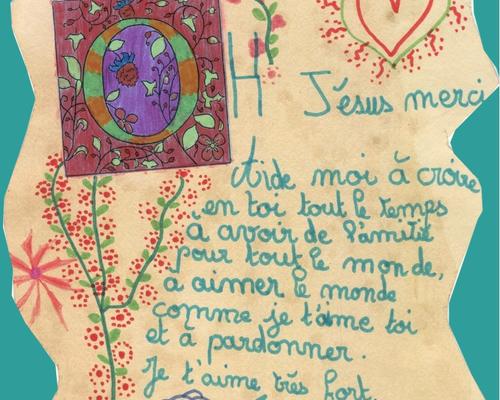 OH Jésus merci
Aide moi à croire
en toi tout le temps
à avoir de l'amitié
pour tout le monde,
à aimer le monde
comme je t'aime toi
et à pardonner.
Je t'aime très fort.